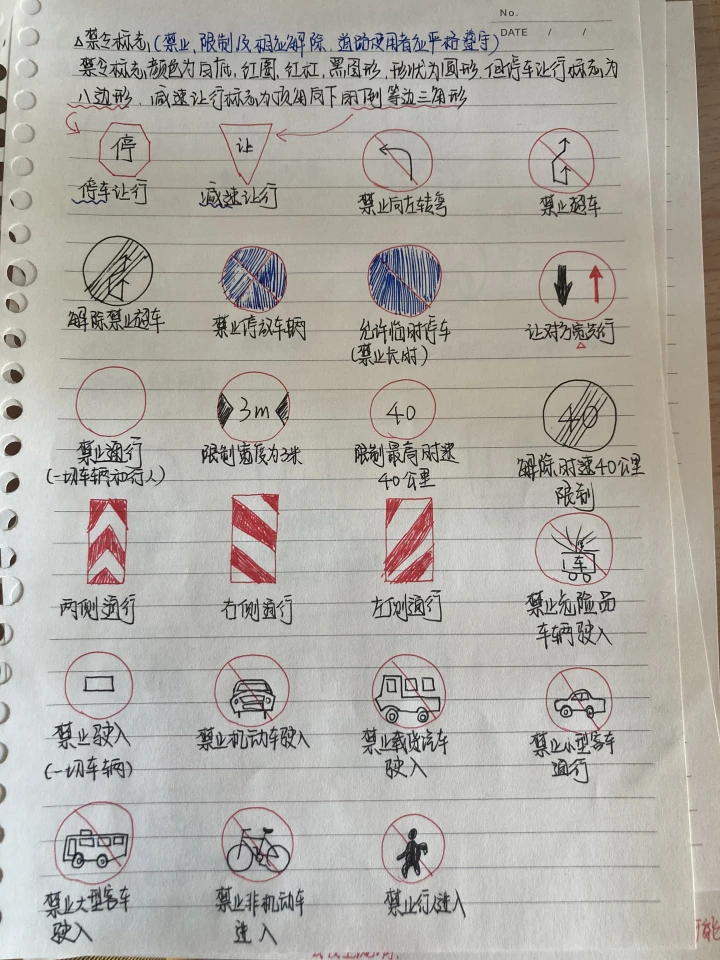 No.
DATE / /
△禁令标志(禁止,限制及相应解除,道路使用者应严格遵守)
禁令标志颜色为白底,红圈,红杠,黑图形,形状为圆形,但停车让行标志为
八边形,减速让行标志为顶角向下的倒等边三角形
停
让
停车让行 减速让行 禁止向左转弯 禁止超车
解除禁止超车 禁止停放车辆 允许临时停车 让对方先行
(禁止长时)
3m 40 40
禁止通行 限制宽度为3米 限制最高时速 解除时速40公里
(一切车辆和行人) 40公里 限制
车
两侧通行 右侧通行 左侧通行 禁止危险品
车辆驶入
禁止驶入 禁止机动车驶入 禁止载货汽车 禁止小型客车
(一切车辆) 驶入 通行
禁止大型客车 禁止非机动车 禁止行人进入
驶入 进入